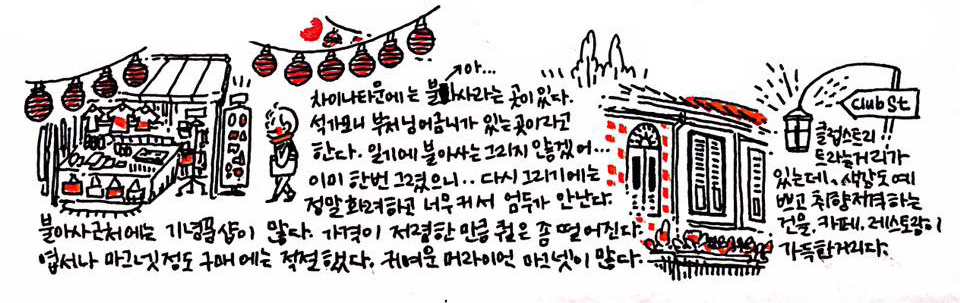 아...
차이나타운에는 불아사라는 곳이 있다.
석가모니 부처님 어금니가 있는 곳이라고
한다. 일기에 불아사는 그리지 않겠어...
이미 한번 그렸으니.. 다시 그리기에는
정말 화려하고 너무 커서 엄두가 안난다.
불아사 근처에는 기념품샵이 많다. 가격이 저렴한 만큼 퀄은 좀 떨어진다.
엽서나 마그넷 정도 구매에는 적절했다. 귀여운 머라이언 마그넷이 많다.
club St
클럽스트리
트라는거리가
있는데, 생각도 예
쁘고 취향저격하는
건물, 카페, 레스토랑이
가득한거리다.